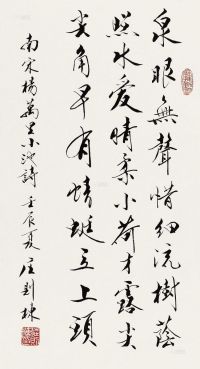 泉眼無聲惜細流樹蔭
照水愛晴柔小荷才露尖
尖角早有蜻蜓立上頭
南宋楊萬里小池詩 壬辰夏